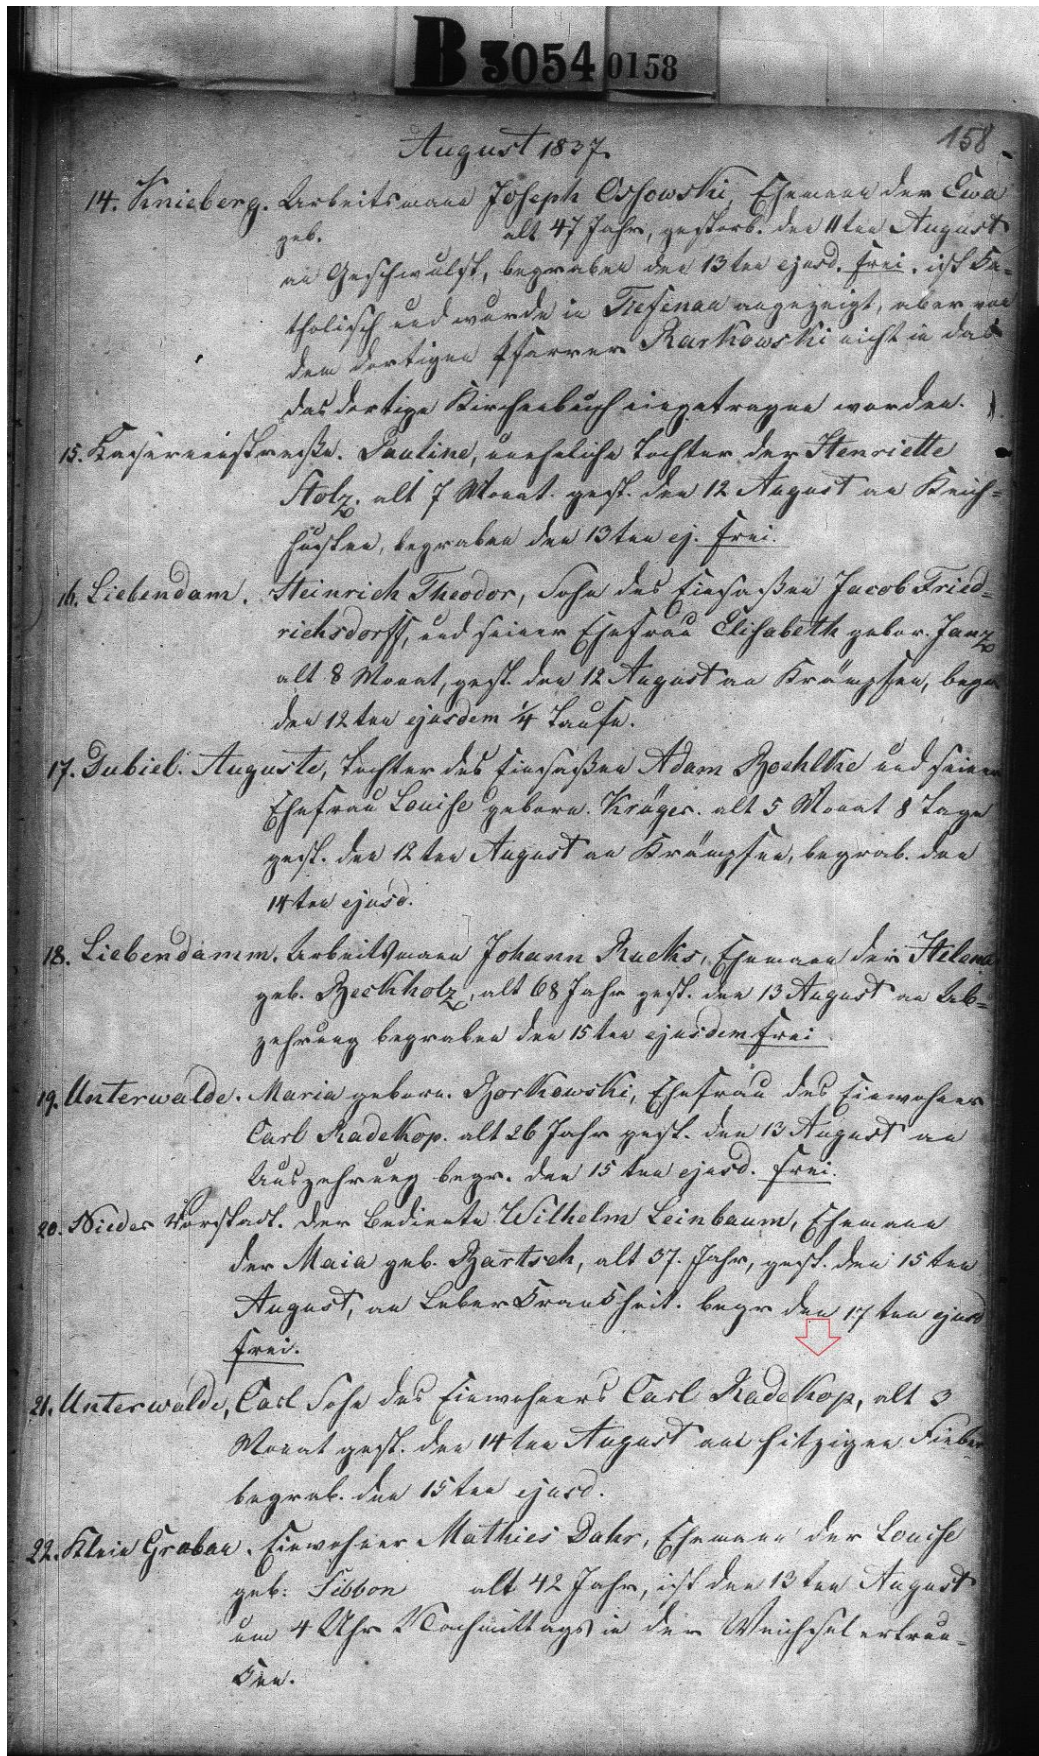 B 3054 0158
158
August 1837.
14. Knieberg. Arbeitsmann Joseph Ossowski, Ehemann der Ewa
geb. alt 47 Jahr, gestorb. den 11ten August
an Geschwulst, begraben den 13ten ejusd. frei. ist Ka-
tholisch und wurde in Tiefenau angezeigt, aber von
dem dortigen Pfarrer Rarkowski nicht in das
das dortige Kirchenbuch eingetragen worden.
15. Pauline, uneheliche Tochter der Henriette
Stolz. alt 7 Monat. gest. den 12 August an Keich-
husten, begraben den 13ten ej. frei.
16. Liebendam. Heinrich Theodor, Sohn des Einsaßen Jacob Fried-
richsdorff, und seiner Ehefrau Elisabeth gebor. Janz
alt 8 Monat, gest. den 12 August an Krämpfen, begr
den 12ten ejusdem 1/4 Taufe.
17. Dubiel. Auguste, Tochter des Einsaßen Adam Boehlke und seiner
Ehefrau Louise geborn. Krüger. alt 5 Monat 8 Tage
gest. den 12ten August an Krämpfen, begrab. den
14ten ejusd.
18. Liebendamm. Arbeitsmann Johann Rucks, Ehemann der Helena
geb. Beckholz, alt 68 Jahr gest. den 13 August an Ab-
zehrung begraben den 15ten ejusdem frei.
19. Unterwalde. Maria geborn. Borkowski, Ehefrau des Einwohner
Carl Radekop. alt 26 Jahr gest. den 13 August an
Auszehrung begr. den 15ten ejusd. frei.
20. Nieder Vorstadt. Der Bediente Wilhelm Leinbaum, Ehemann
der Maia geb. Bartsch, alt 37. Jahr, gest. den 15ten
August, an Leber Krankheit. begr den 17ten ejusd
frei.
21. Unterwalde, Carl Sohn des Einwohners Carl Radekop, alt 3
Monat gest. den 14ten August am hitzigen Fieber
begrab. den 15ten ejusd.
22. Klein Graban. Einwohner Mathies Dahr, Ehemann der Louise
geb. Tibbon alt 42 Jahr, ist den 13ten August
um 4 Uhr Nachmittags in der Weichsel ertrun-
ken.